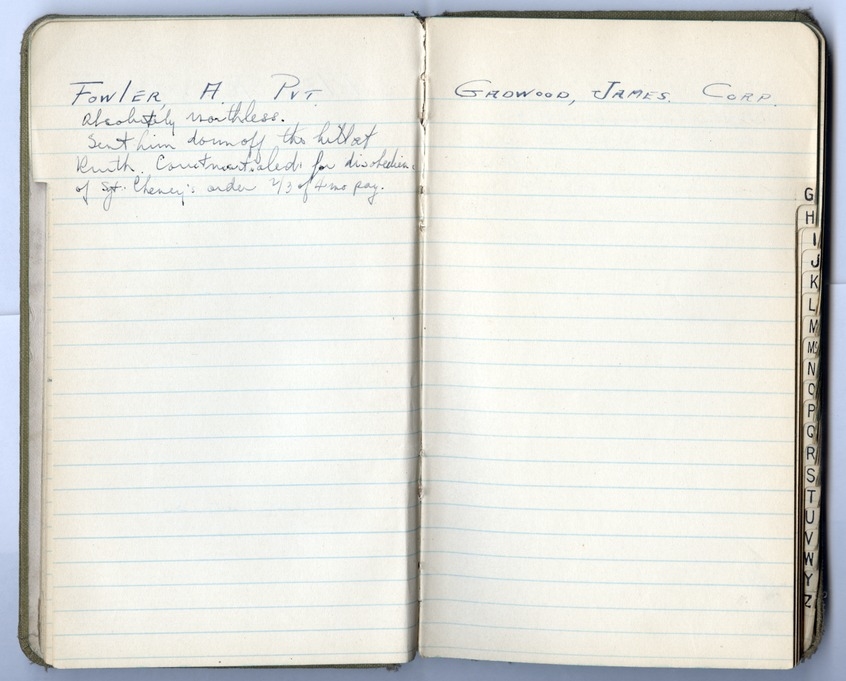 Fowler, A. Pvt.
Absolutely worthless.
Sent him down off the hill at
Courtmartialed for disobedien
of Sgt. Cheney's order 2/3 of 4 mo pay.
Gadwood, James. Corp.
G
H
I
J
K
L
M
Mc
N
O
P
Q
R
S
T
U
V
W
Y
Z